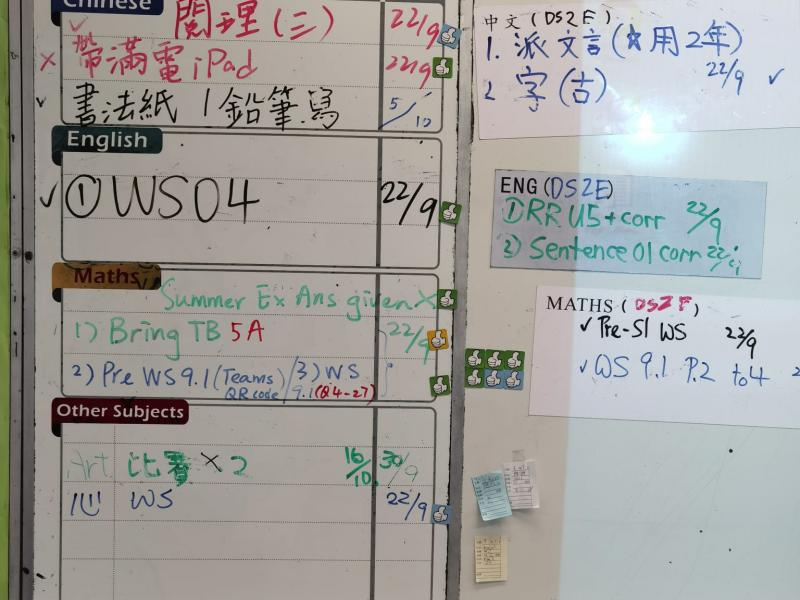 Chinese
閱理(三) 22/9
帶滿電iPad 22/9
書法紙 1鉛筆寫 5/10
English
①WS04 22/9
Maths
Summer Ex Ans given
1) Bring TB 5A 22/9
2) Pre WS 9.1 (Teams QR code) 3) WS 9.1 (Q4-27)
Other Subjects
Art 比賽 x 2 16/10 30/9
心 WS 22/9
中文 (DS2E)
1. 派文言(★用2年)
2 字(古) 22/9
ENG (DS2E)
1) DRR U5 + corr 22/9
2) Sentence 01 corr 22/9
MATHS (DS2F)
Pre-S1 WS 22/9
WS 9.1 P.2 to 4